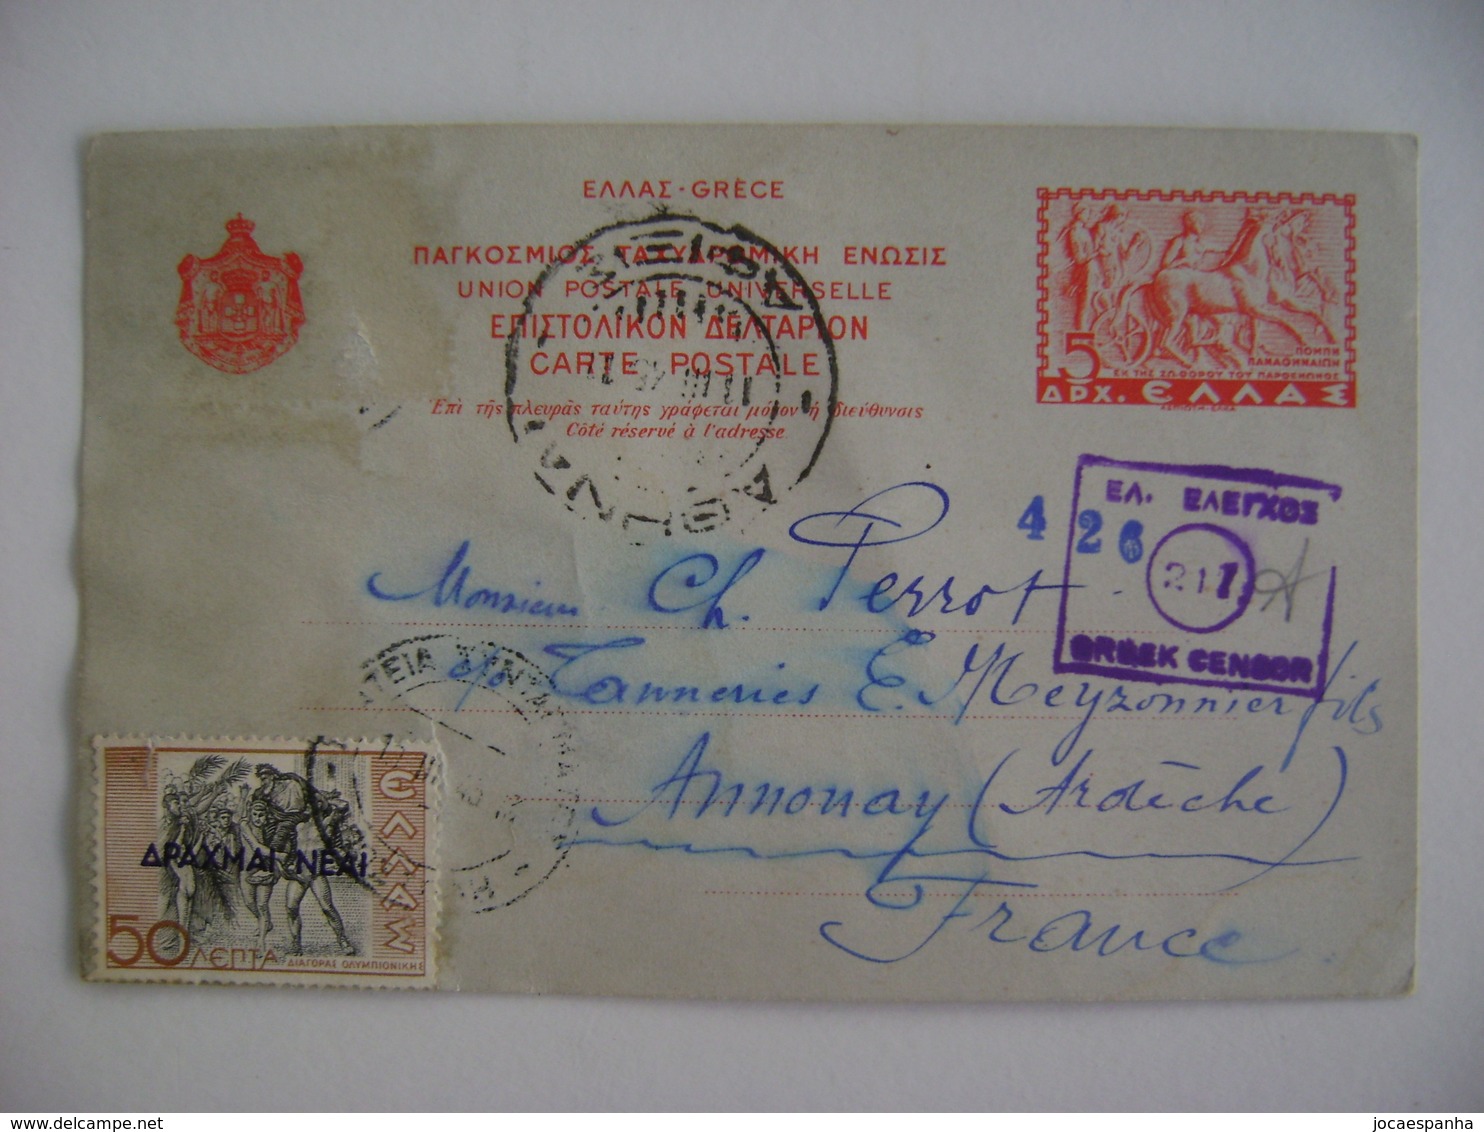 ΕΛΛΑΣ - GRÈCE
ΠΑΓΚΟΣΜΙΟΣ ΤΑΧΥΔΡΟΜΙΚΗ ΕΝΩΣΙΣ
UNION POSTALE UNIVERSELLE
ΕΠΙΣΤΟΛΙΚΟΝ ΔΕΛΤΑΡΙΟΝ
CARTE POSTALE
Ἐπὶ τῆς πλευρᾶς ταύτης γράφεται μόνον ἡ διεύθυνσις
Côté réservé à l'adresse
5
ΠΟΜΠΗ
ΠΑΝΑΘΗΝΑΙΩΝ
ΕΚ ΤΗΣ ΖΩΦΟΡΟΥ ΤΟΥ ΠΑΡΘΕΝΩΝΟΣ
ΔΡΧ. ΕΛΛΑΣ
ΑΘΗΝΑΙ
426
ΕΛ. ΕΛΕΓΧΟΣ
217
A
GREEK CENSOR
Monsieur Ch. Perrot
c/o Tanneries E. Meyzonnier fils
Annonay (Ardèche)
France
ΔΡΑΧΜΑΙ ΝΕΑΙ
ΕΛΛΑΣ
50 ΛΕΠΤΑ
ΔΙΑΓΟΡΑΣ ΟΛΥΜΠΙΟΝΙΚΗΣ
http://www.delcampe.net
jocaespanha